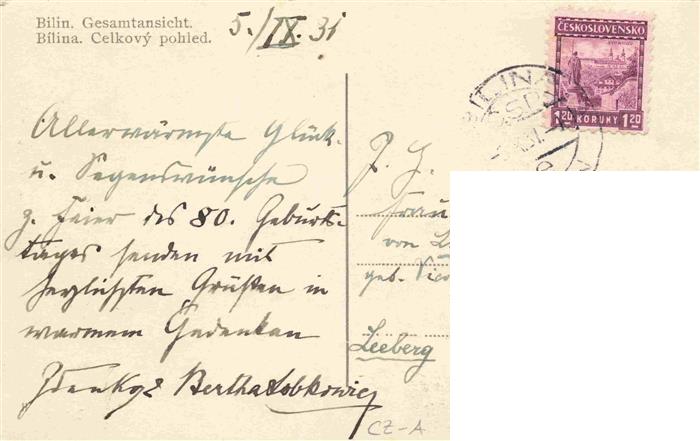 Bilin. Gesamtansicht.
Bílina. Celkový pohled.
5./IX.31
ČESKOSLOVENSKO
1.20 KORUNY 1.20
Allerwärmste Glück-
u. Segenswünsche
z. Feier des 80. Geburts-
tages senden mit
herzlichsten Grüßen in
warmem Gedenken
Bertha Lobkowicz
Frau
von
geb.
Leeberg
CZ-A